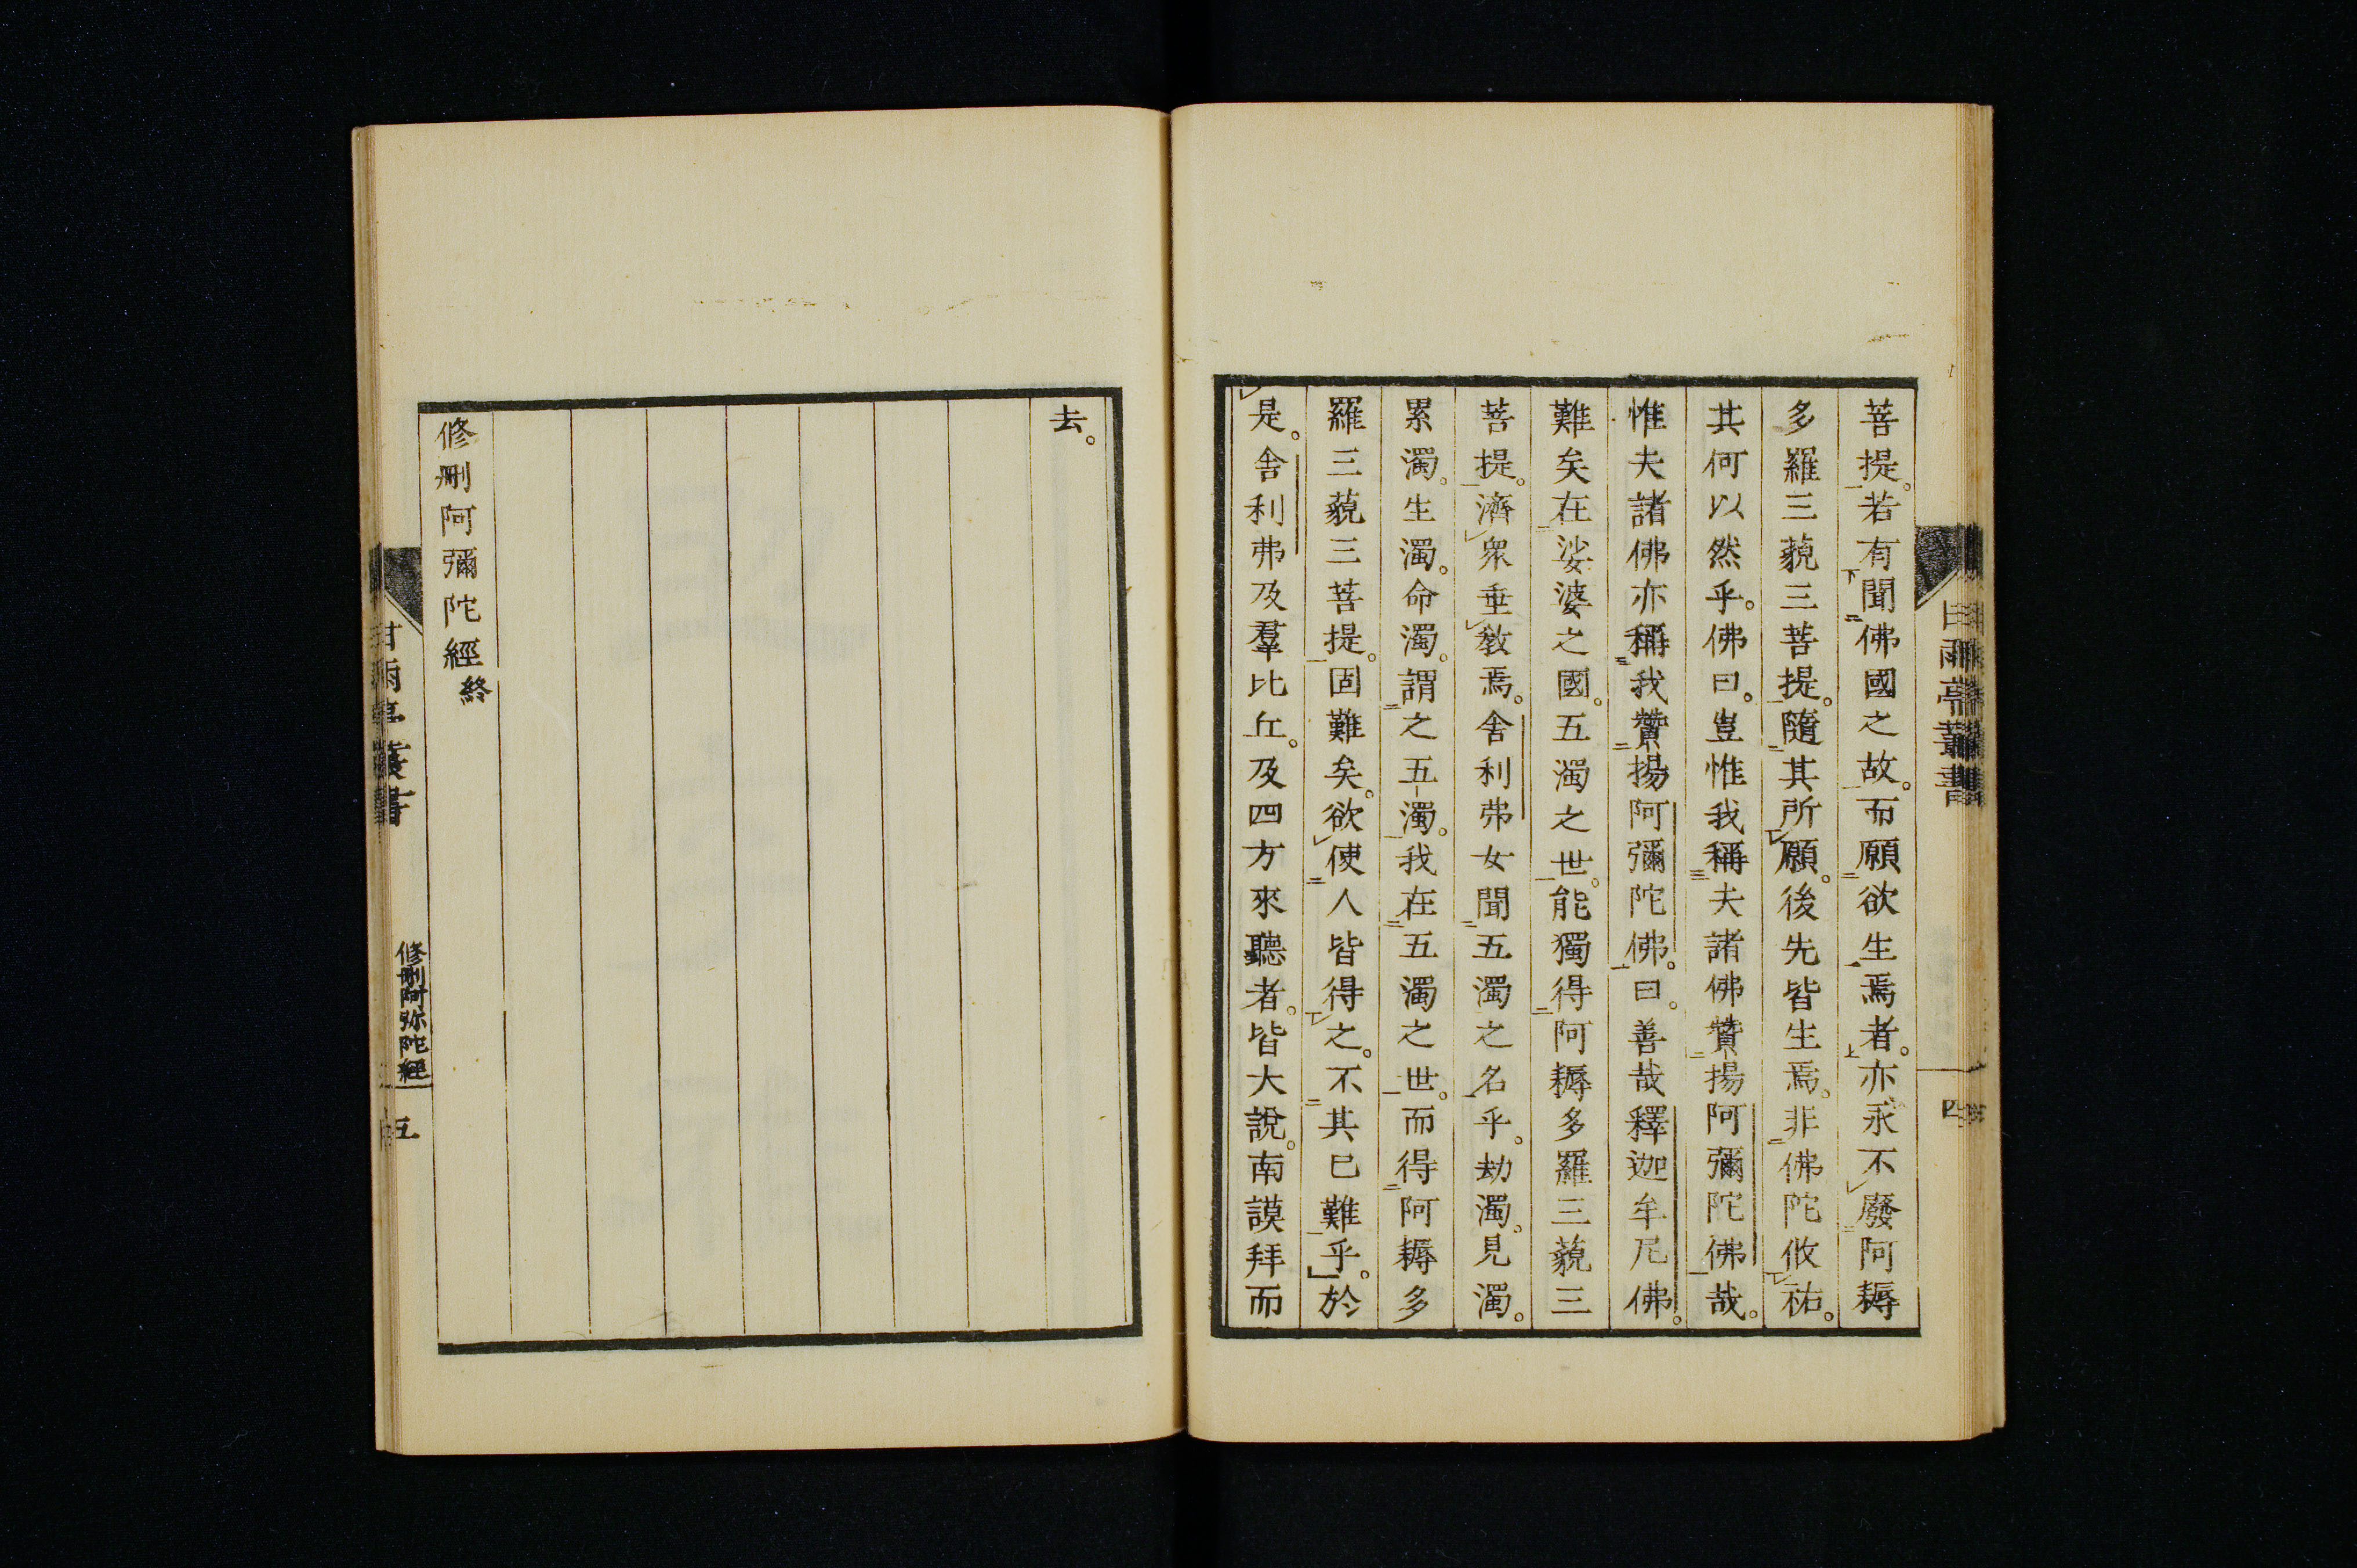 菩提。若有聞佛國之故。而願欲生焉者。亦永不廢阿耨
多羅三藐三菩提。隨其所願。後先皆生焉。非佛陀攸祐。
其何以然乎。佛曰。豈惟我稱夫諸佛贊揚阿彌陀佛哉。
惟夫諸佛亦稱我贊揚阿彌陀佛。曰。善哉釋迦牟尼佛。
難矣在娑婆之國。五濁之世。能獨得阿耨多羅三藐三
菩提。濟衆垂敎焉。舍利弗女聞五濁之名乎。劫濁。見濁。
累濁。生濁。命濁。謂之五濁。我在五濁之世。而得阿耨多
羅三藐三菩提。固難矣。欲使人皆得之。不其已難乎。」於
是。舍利弗及羣比丘。及四方來聽者。皆大說。南謨拜而
四
去。
修刪阿彌陀經終
甘雨亭叢書
修刪阿弥陀經
五